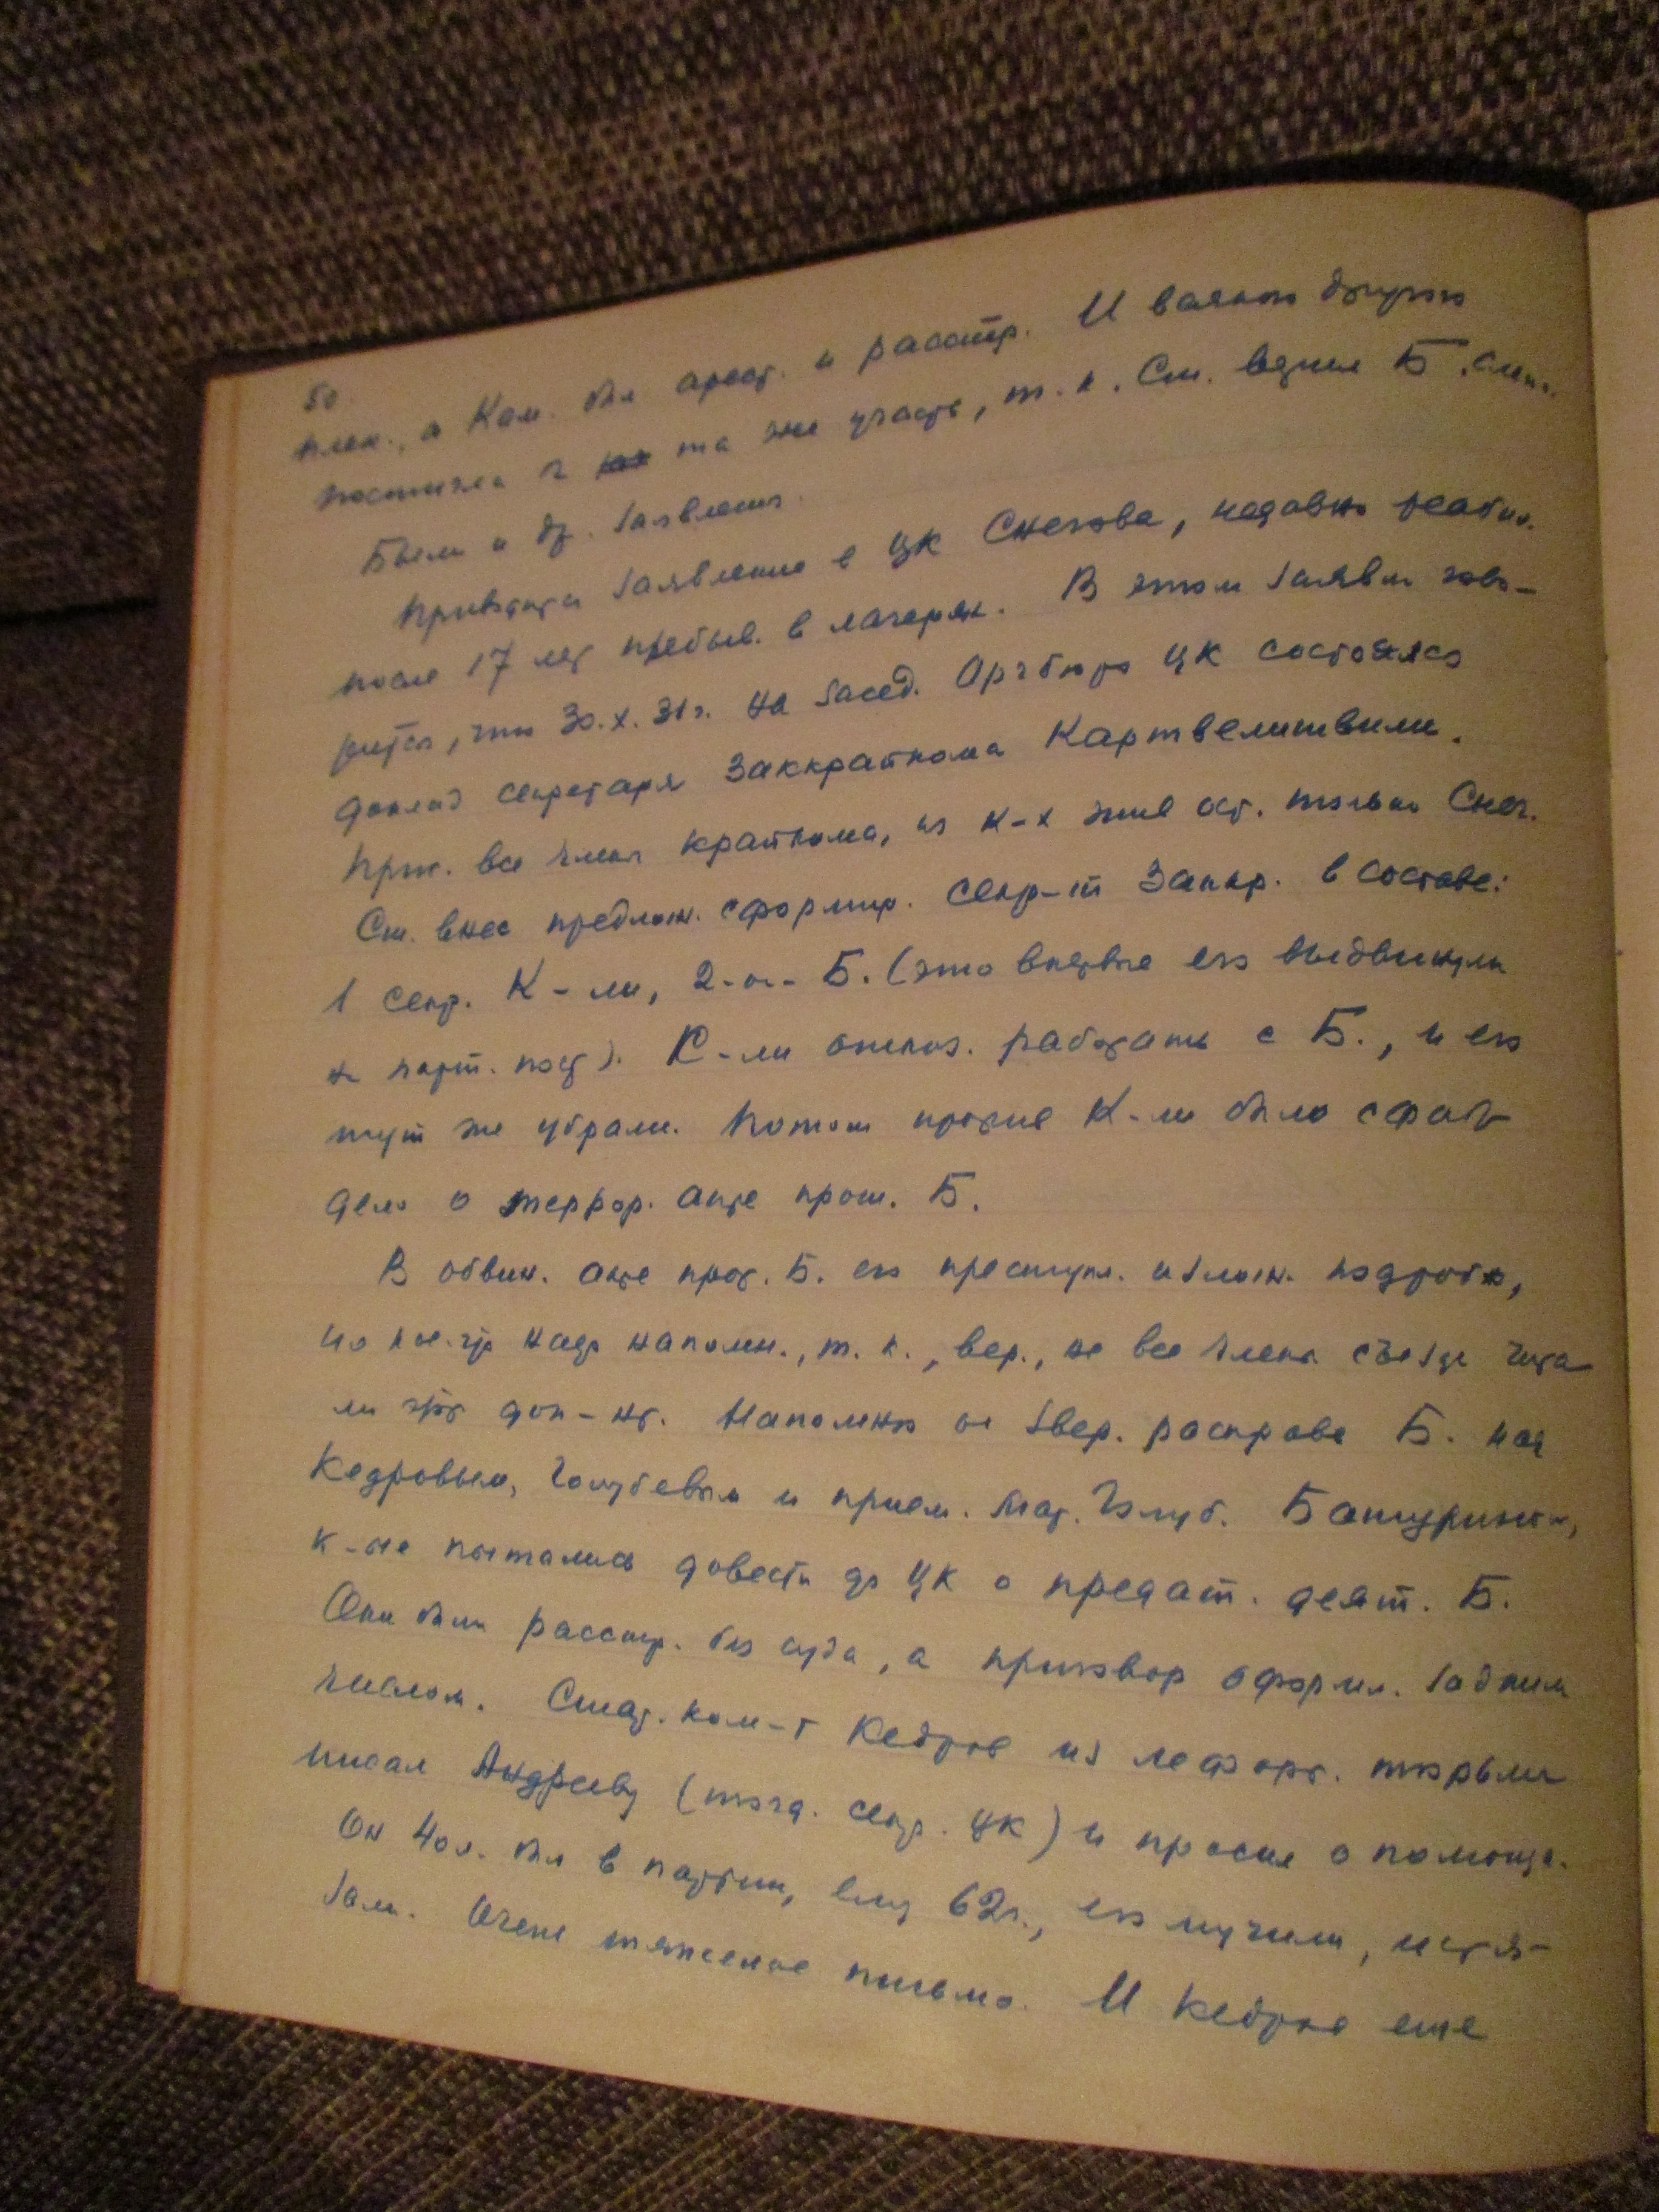 50
плен., а Кам. был арест. и расстр. И всякого другого
постигла б та же участь, т. к. Ст. верил Б. слепо.
Были и др. заявления.
Приводится заявление в ЦК Снегова, недавно реабил.
после 17 лет пребыв. в лагерях. В этом заявлен. гово-
рится, что 30.X.31г. на засед. Оргбюро ЦК состоялся
доклад секретаря Заккрайкома Картвелишвили.
Прис. все члены крайкома, из к-х жив ост. только Снег.
Ст. внес предлож. сформир. секр-т Заккр. в составе:
1 секр. К-ли, 2-ой - Б. (это впервые его выдвинули
на парт. пост). К-ли отказ. работать с Б., и его
тут же убрали. Потом против К-ли было сфабр.
дело о террор. акте прот. Б.
В обвин. акте прот. Б. его преступл. излож. подробно,
но кое-что надо напомн., т. к., вер., не все члены съезда чита
ли этот док-нт. Напомню о звер. расправе Б. над
Кедровым, Голубевым и прием. мат. Голуб. Батуриной,
к-ые пытались довести до ЦК о предат. деят. Б.
Они были расстр. без суда, а приговор оформл. задним
числом. Стар. ком-т Кедров из Лефорт. тюрьмы
писал Андрееву (тогд. секр. ЦК) и просил о помощи.
Он 40 л. был в партии, ему 62г., его мучили, истя-
зали. Очень тяжелое письмо. И Кедров еще